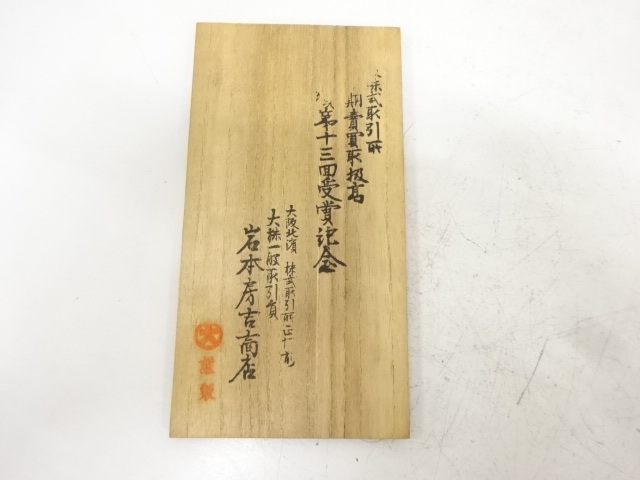 株式取引所
期賣買取扱高
第十三回受賞記念
大阪北濱 株式取引所正十前
大株一般取引員
岩本房吉商店
大
謹製